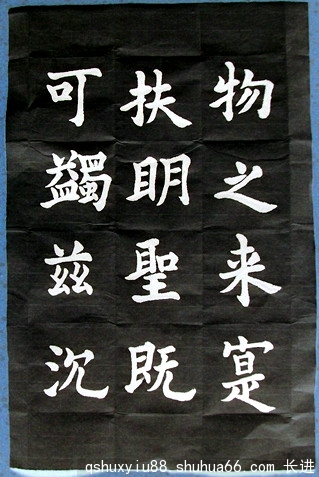 物之来寔
扶眀聖既
可蠲兹沉
qshuxyiu88 shuhua66.com 长进